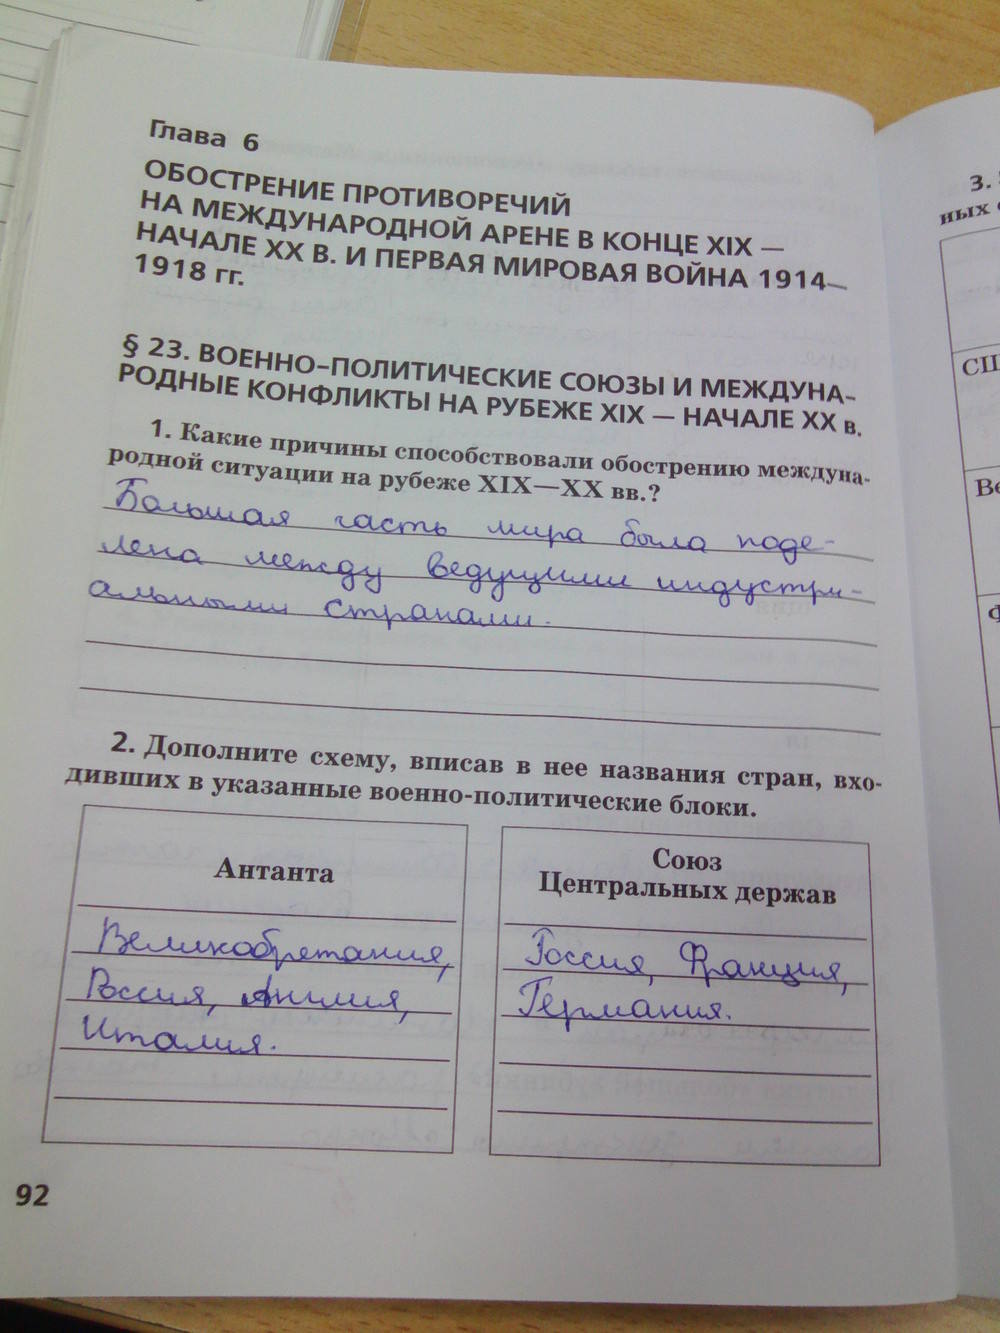 Глава 6
ОБОСТРЕНИЕ ПРОТИВОРЕЧИЙ
НА МЕЖДУНАРОДНОЙ АРЕНЕ В КОНЦЕ XIX —
НАЧАЛЕ XX В. И ПЕРВАЯ МИРОВАЯ ВОЙНА 1914—
1918 гг.
§ 23. ВОЕННО-ПОЛИТИЧЕСКИЕ СОЮЗЫ И МЕЖДУНА-
РОДНЫЕ КОНФЛИКТЫ НА РУБЕЖЕ XIX — НАЧАЛЕ XX в.
1. Какие причины способствовали обострению междуна-
родной ситуации на рубеже XIX—XX вв.?
Большая часть мира была поде-
лена между ведущими индустри-
альными странами.
2. Дополните схему, вписав в нее названия стран, вхо-
дивших в указанные военно-политические блоки.
Антанта
Великобретания,
Россия, Англия,
Италия.
Союз
Центральных держав
Россия, Франция,
Германия.
92
3.
ных
СШ
Ве
Ф